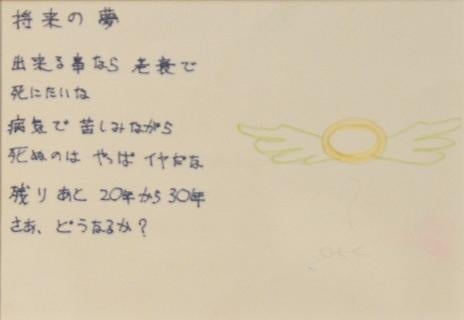 将来の夢
出来る事なら 老衰で
死にたいな
病気で 苦しみながら
死ぬのは やっぱ イヤだな
残り あと 20年から 30年
さあ、どうなるか？